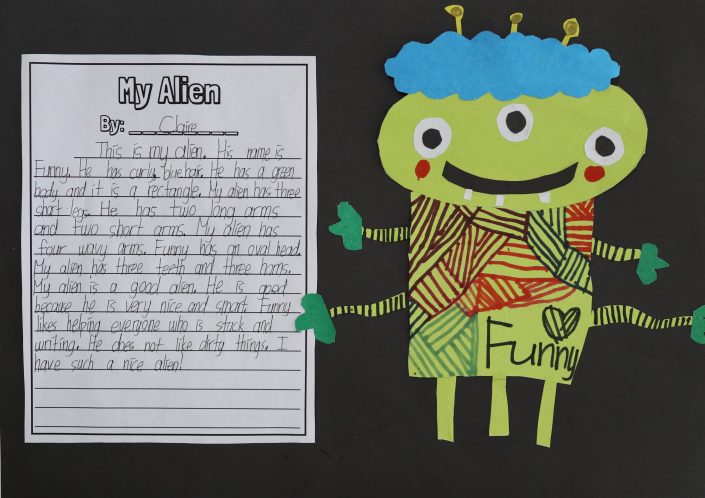 My Alien
By: Claire
This is my alien. His name is
Funny. He has curly, blue hair. He has a green
body and it is a rectangle. My alien has three
short legs. He has two long arms
and two short arms. My alien has
four wavy arms. Funny has an oval head.
My alien has three teeth and three horns.
My alien is a good alien. He is good
because he is very nice and smart. Funny
likes helping everyone who is stuck and
writing. He does not like dirty things. I
have such a nice alien!
Funny